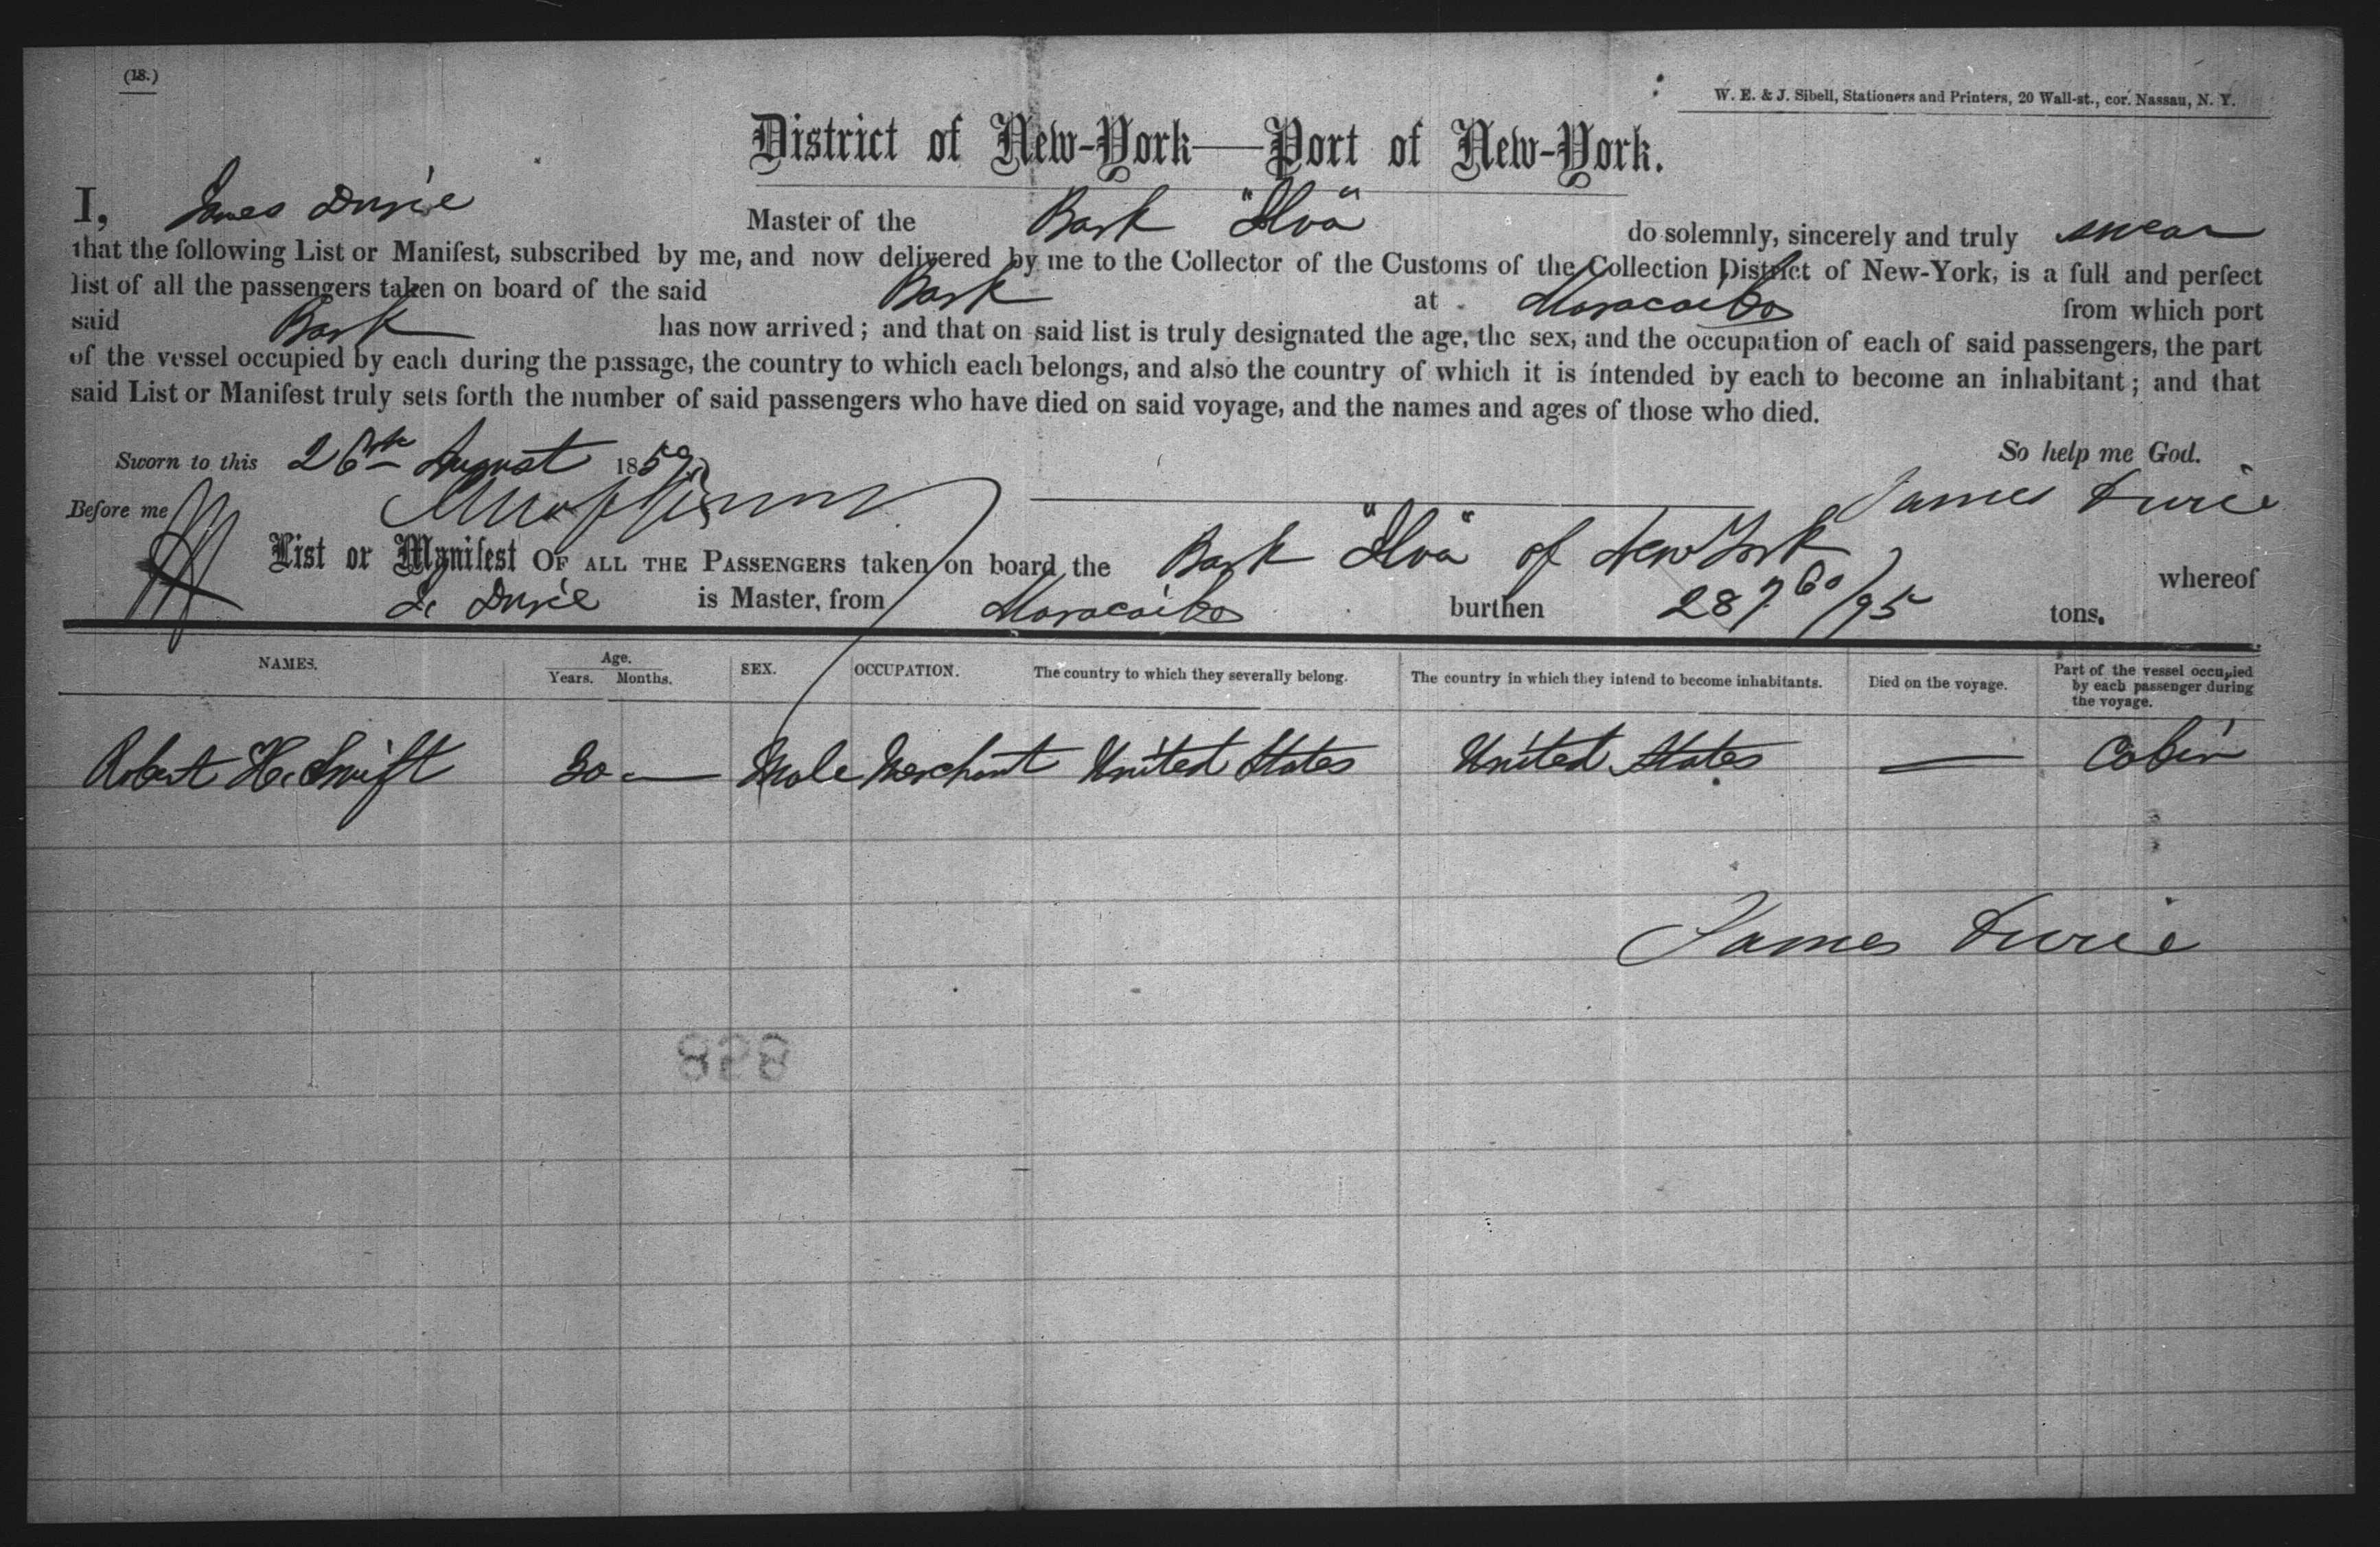 (18.)
W. E. & J. Sibell, Stationers and Printers, 20 Wall-st., cor. Nassau, N. Y.
District of New-York—Port of New-York.
I, James Durie Master of the Bark "Alva" do solemnly, sincerely and truly swear
that the following List or Manifest, subscribed by me, and now delivered by me to the Collector of the Customs of the Collection District of New-York, is a full and perfect
list of all the passengers taken on board of the said Bark at Maracaibo from which port
said Bark has now arrived; and that on said list is truly designated the age, the sex, and the occupation of each of said passengers, the part
of the vessel occupied by each during the passage, the country to which each belongs, and also the country of which it is intended by each to become an inhabitant; and that
said List or Manifest truly sets forth the number of said passengers who have died on said voyage, and the names and ages of those who died.
Sworn to this 26th August 1859 So help me God.
Before me James Durie
List or Manifest OF ALL THE PASSENGERS taken on board the Bark "Alva" of New York whereof
J. Durie is Master, from Maracaibo burthen 287 60/95 tons.
NAMES. Age. Years. Months. SEX. OCCUPATION. The country to which they severally belong. The country in which they intend to become inhabitants. Died on the voyage. Part of the vessel occupied by each passenger during the voyage.
Robert H. Swift 30 — Male Merchant United States United States — Cabin
James Durie